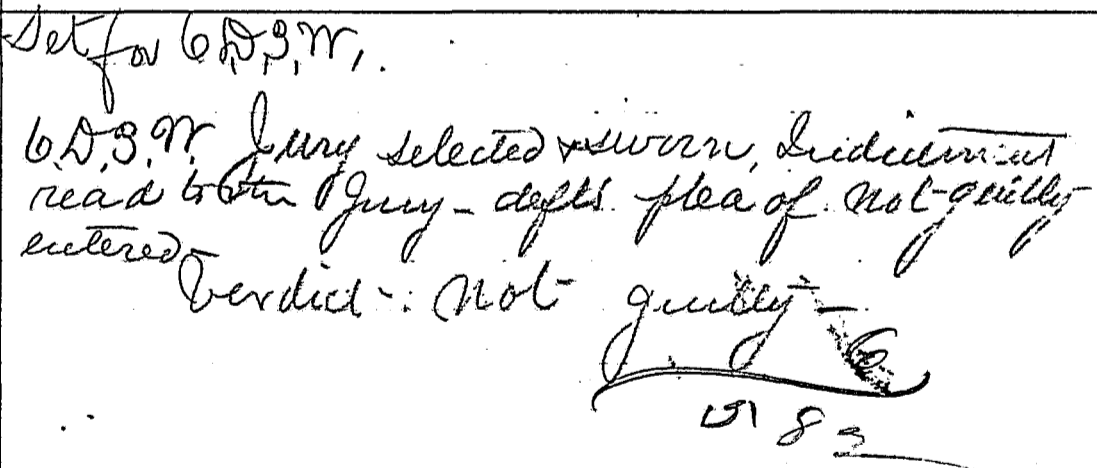 Set for 6, D, 3, W,.
6. D, 3, W, Jury selected & sworn, Indictment
read to the Jury - defts. plea of not-guilty
entered -
Verdict -: Not guilty -
83